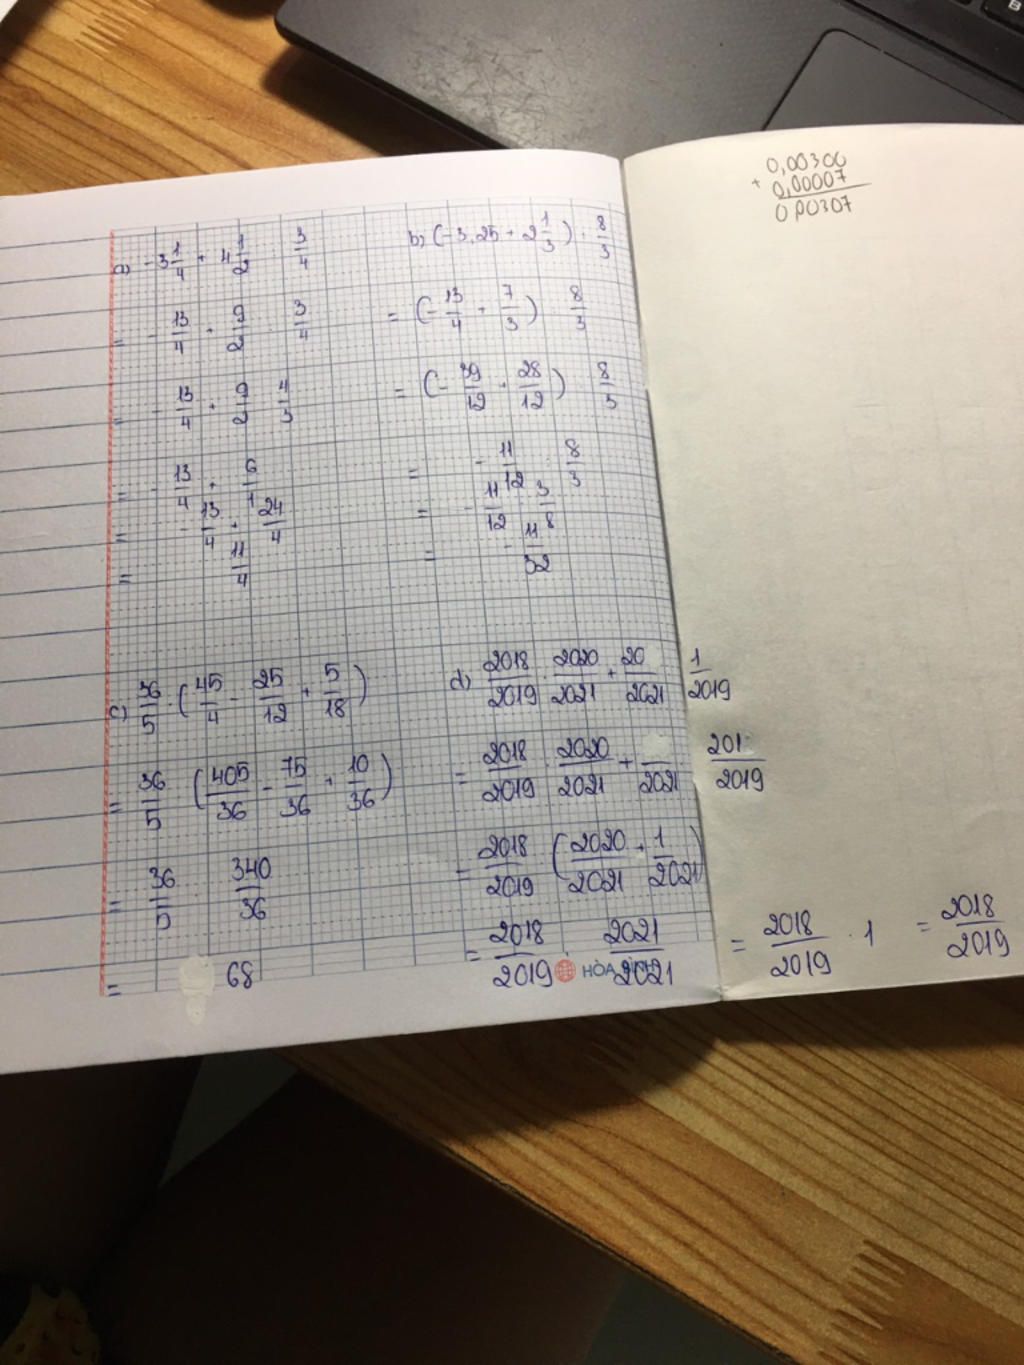 0,00300
+ 0,00007
0,00307
a) -3 1/4 + 4 1/2 : 3/4
= - 13/4 + 9/2 : 3/4
= - 13/4 + 9/2 . 4/3
= - 13/4 + 6/1
= - 13/4 + 24/4
= 11/4
b) (-3,25 + 2 1/3) : 8/3
= (- 13/4 + 7/3) : 8/3
= (- 39/12 + 28/12) : 8/3
= - 11/12 : 8/3
= - 11/12 . 3/8
= - 11/32
c) 36/5 . (45/4 - 25/12 + 5/18)
= 36/5 . (405/36 - 75/36 + 10/36)
= 36/5 . 340/36
= 68
d) 2018/2019 . 2020/2021 + 20/2021 . 1/2019
= 2018/2019 . 2020/2021 + /2021 . 201/2019
= 2018/2019 . (2020/2021 + 1/2021)
= 2018/2019 . 2021/2021 = 2018/2019 . 1 = 2018/2019